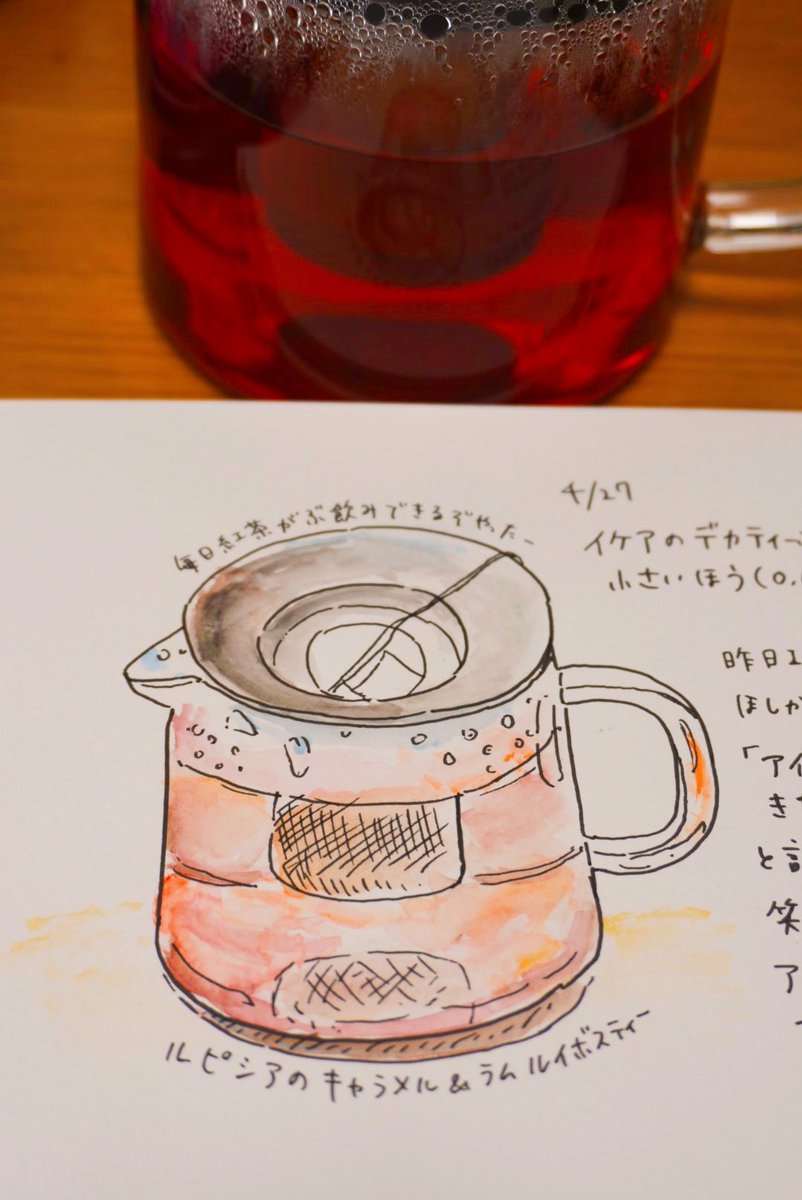 毎日紅茶がぶ飲みできるぞやったー
4/27
イケアのデカティー
小さいほう(0.
昨日
ほしか
「アイ
き
と
笑
ア
ルピシアのキャラメル&ラムルイボスティー